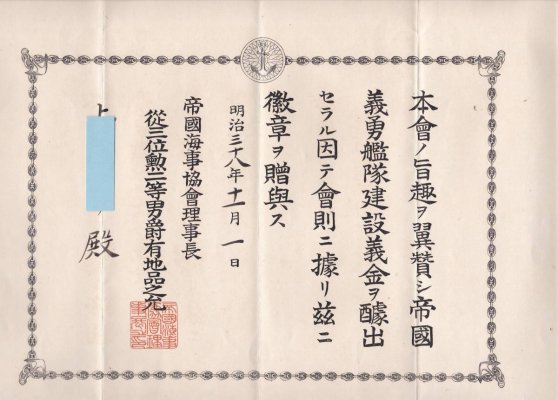 本會ノ旨趣ヲ翼賛シ帝國
義勇艦隊建設義金ヲ醵出
セラル因テ會則ニ據リ玆ニ
徽章ヲ贈與ス
明治三十八年十一月一日
帝國海事協會理事長
從三位勲二等男爵有地品之允
殿